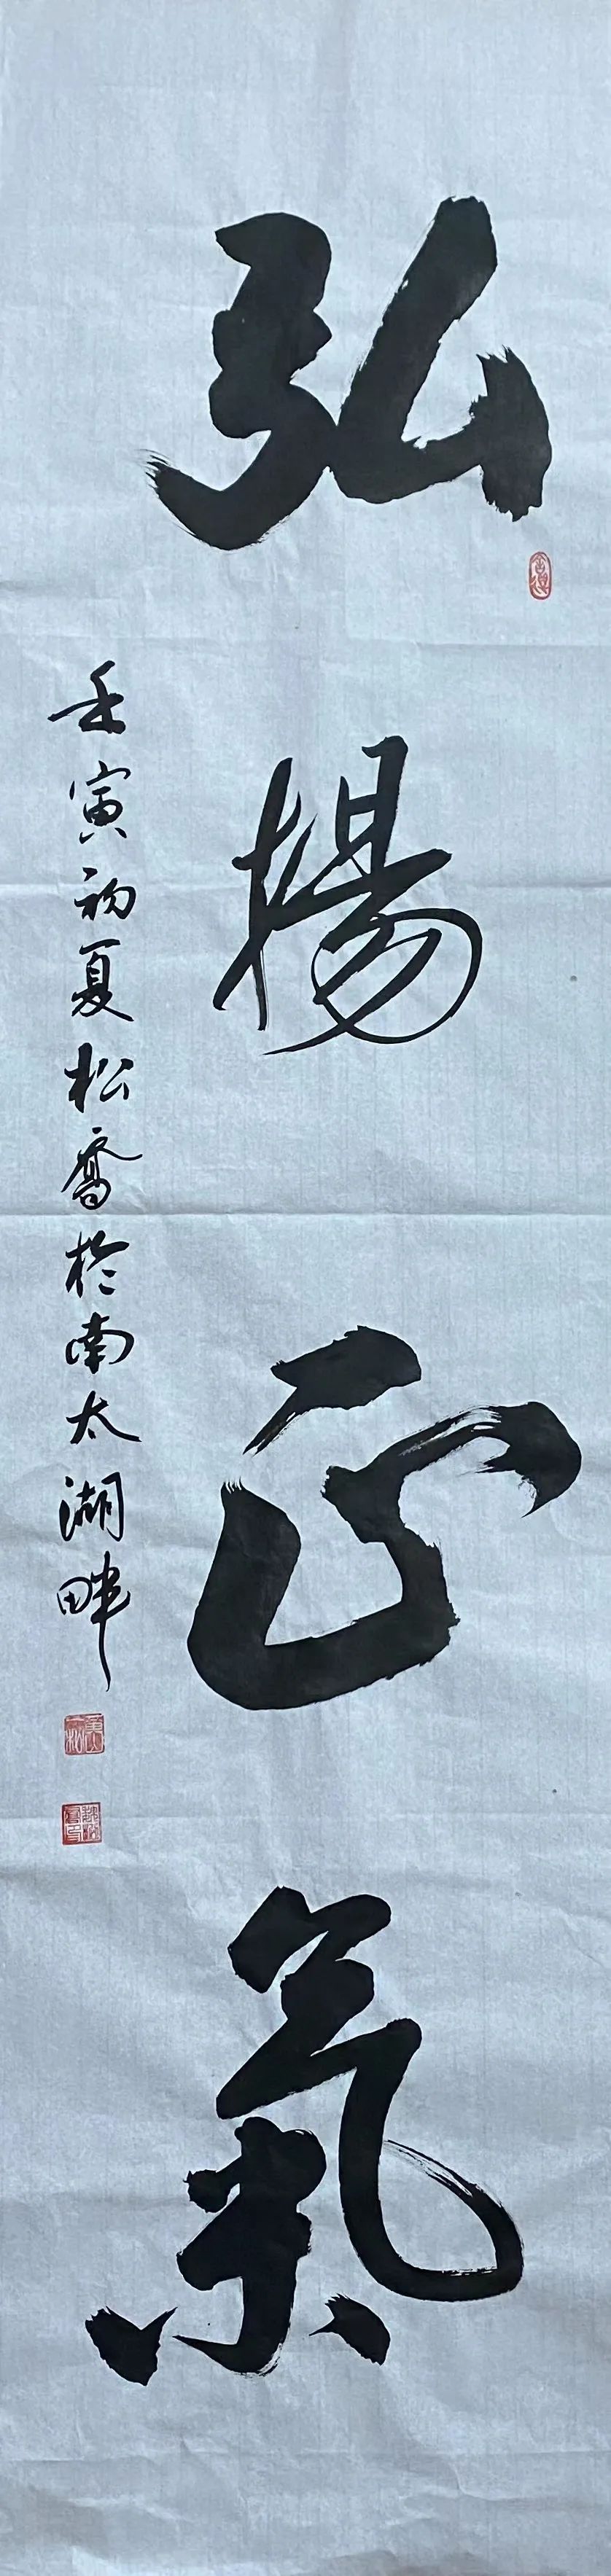 弘揚正氣
壬寅初夏松喬於南太湖畔